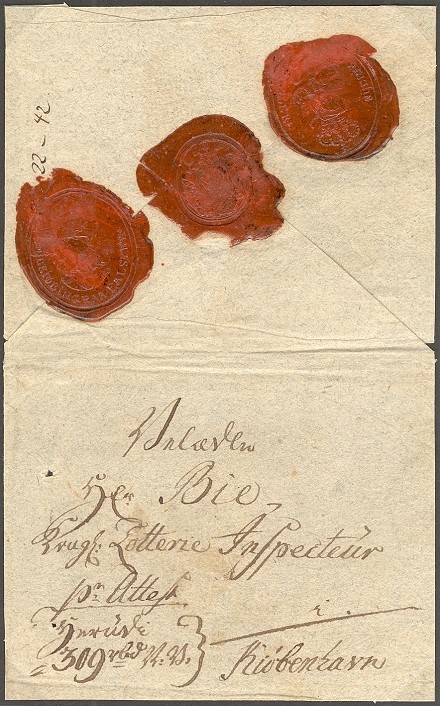 22 – 42
Velædle
Hr. Bie,
Kongl. Lotterie Inspecteur
pr. Attest
Herudi
309 rbd N. V.
i
Kiöbenhavn